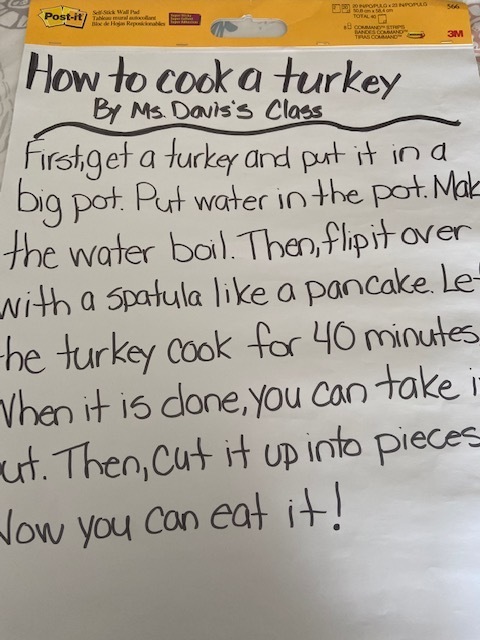 Post-it
Self-Stick Wall Pad
Tableau mural autocollant
Bloc de Hojas Reposicionables
Super Sticky
20 IN/PO/PULG x 23 IN/PO/PULG
50,8 cm x 58,4 cm
TOTAL 40
COMMAND™ STRIPS
BANDES COMMAND™
TIRAS COMMAND™
566
3M
How to cook a turkey
By Ms. Davis's Class
First, get a turkey and put it in a
big pot. Put water in the pot. Mak
the water boil. Then, flip it over
with a spatula like a pancake. Le
he turkey cook for 40 minutes
When it is done, you can take i
ut. Then, cut it up into pieces
Now you can eat it!